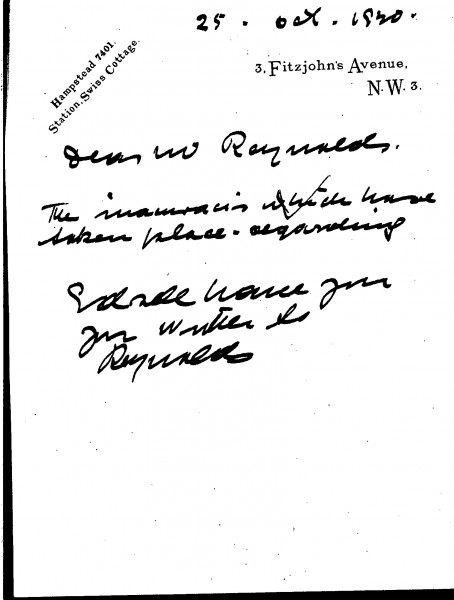 25. Oct. 1920.
Hampstead 7401.
Station, Swiss Cottage.
3, Fitzjohn's Avenue,
N.W. 3.
Dear Mr Reynolds.
The inaccuracies which have
taken place - regarding
have you
you written to
Reynolds